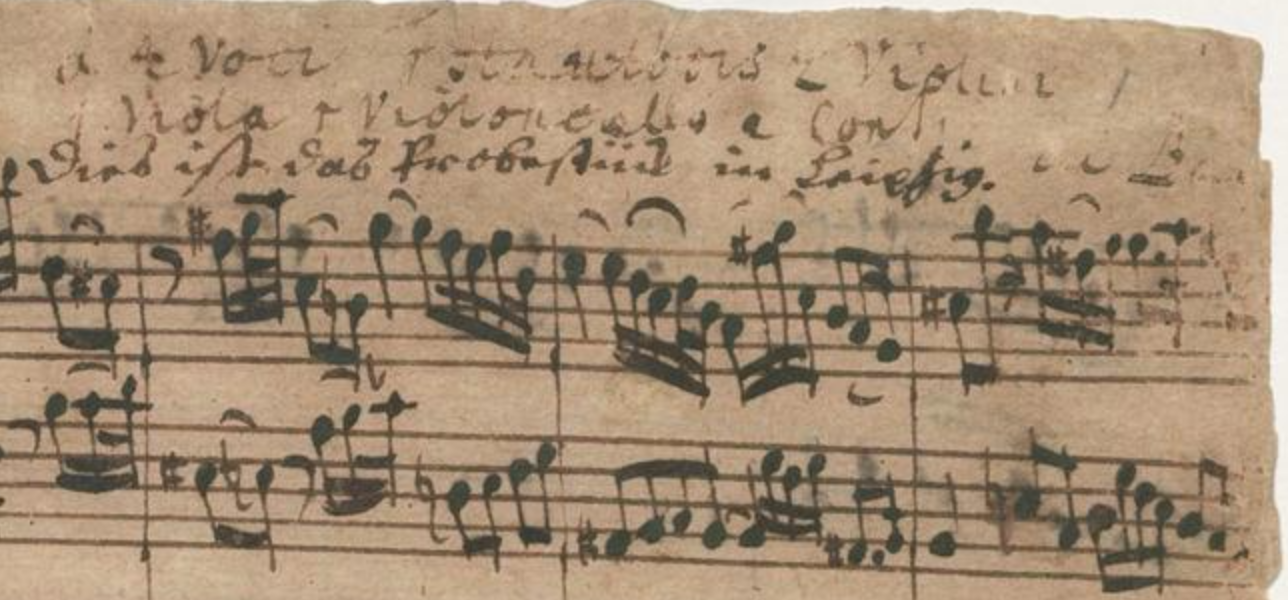 à 4 Voci 2 Violini
Viola e Violoncello e Cont.
Dies ist das Probestück in Leipzig.